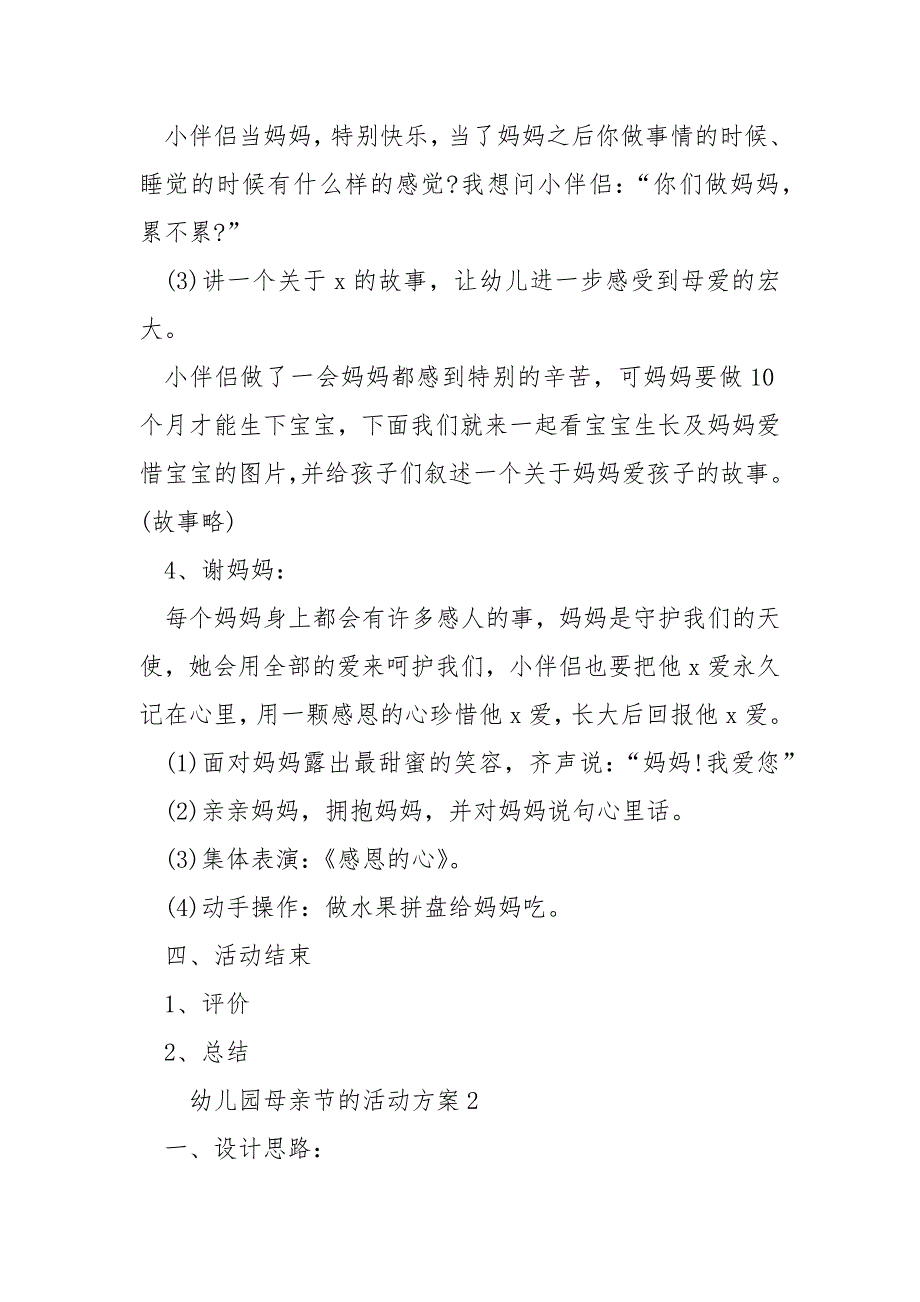 小伴侣当妈妈，特别快乐，当了妈妈之后你做事情的时候、
睡觉的时候有什么样的感觉?我想问小伴侣：“你们做妈妈，
累不累?”
(3)讲一个关于 x 的故事，让幼儿进一步感受到母爱的宏
大。
小伴侣做了一会妈妈都感到特别的辛苦，可妈妈要做 10
个月才能生下宝宝，下面我们就来一起看宝宝生长及妈妈爱
惜宝宝的图片,并给孩子们叙述一个关于妈妈爱孩子的故事。
(故事略)
4、谢妈妈：
每个妈妈身上都会有许多感人的事，妈妈是守护我们的天
使，她会用全部的爱来呵护我们，小伴侣也要把他 x 爱永久
记在心里，用一颗感恩的心珍惜他 x 爱，长大后回报他 x 爱。
(1)面对妈妈露出最甜蜜的笑容，齐声说：“妈妈!我爱您”
(2)亲亲妈妈，拥抱妈妈，并对妈妈说句心里话。
(3)集体表演：《感恩的心》。
(4)动手操作：做水果拼盘给妈妈吃。
四、活动结束
1、评价
2、总结
幼儿园母亲节的活动方案 2
一、设计思路：